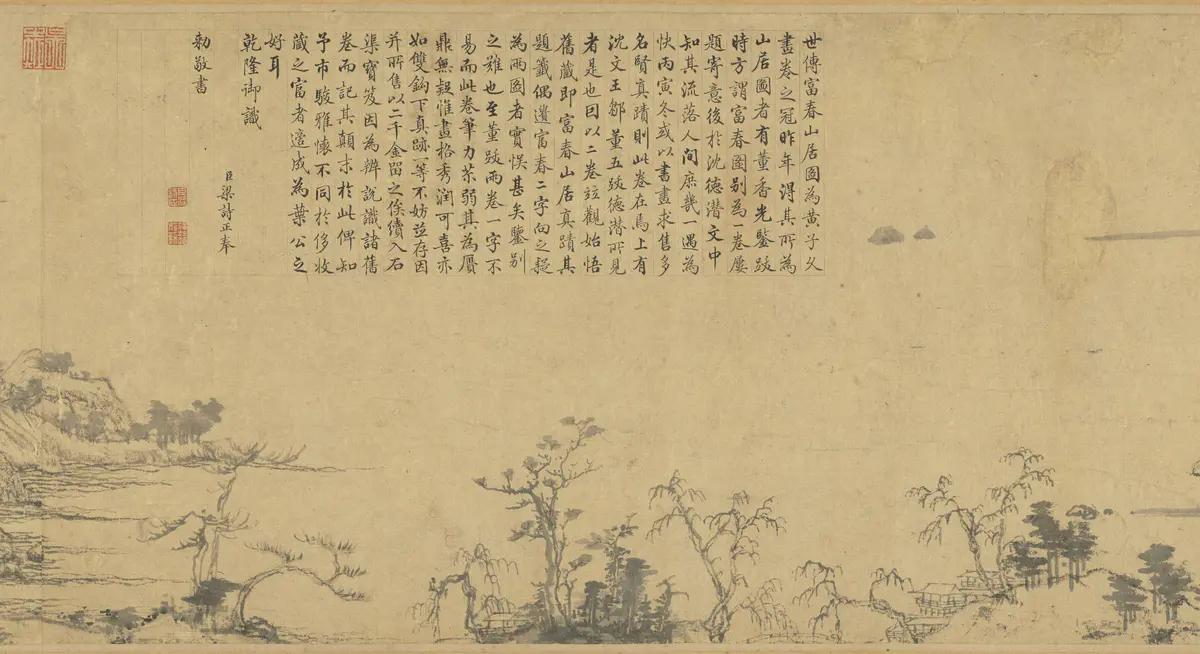 世傳富春山居圖為黃子久
畫卷之冠昨年得其所為
山居圖者有董香光鑒跋
時方謂富春圖別為一卷屢
題寄意後於沈德潛文中
知其流落人間庶幾一遇為
快丙寅冬或以書畫求售多
名賢真蹟則此卷在焉上有
沈文王鄒董五跋德潛所見
者是也因以二卷竝觀始悟
舊藏即富春山居真蹟其
題籤偶遺富春二字向之疑
為兩圖者實悞甚矣鑒別
之難也至董跋兩卷一字不
易而此卷筆力苶弱其為贗
鼎無疑惟畫格秀潤可喜亦
如雙鈎下真跡一等不妨竝存因
并所售以二千金留之俟續入石
渠寶笈因為辨說識諸舊
卷而記其顛末於此俾知
予市駿雅懷不同於侈收
藏之富者適成為葉公之
好耳
乾隆御識
臣梁詩正奉
勅敬書